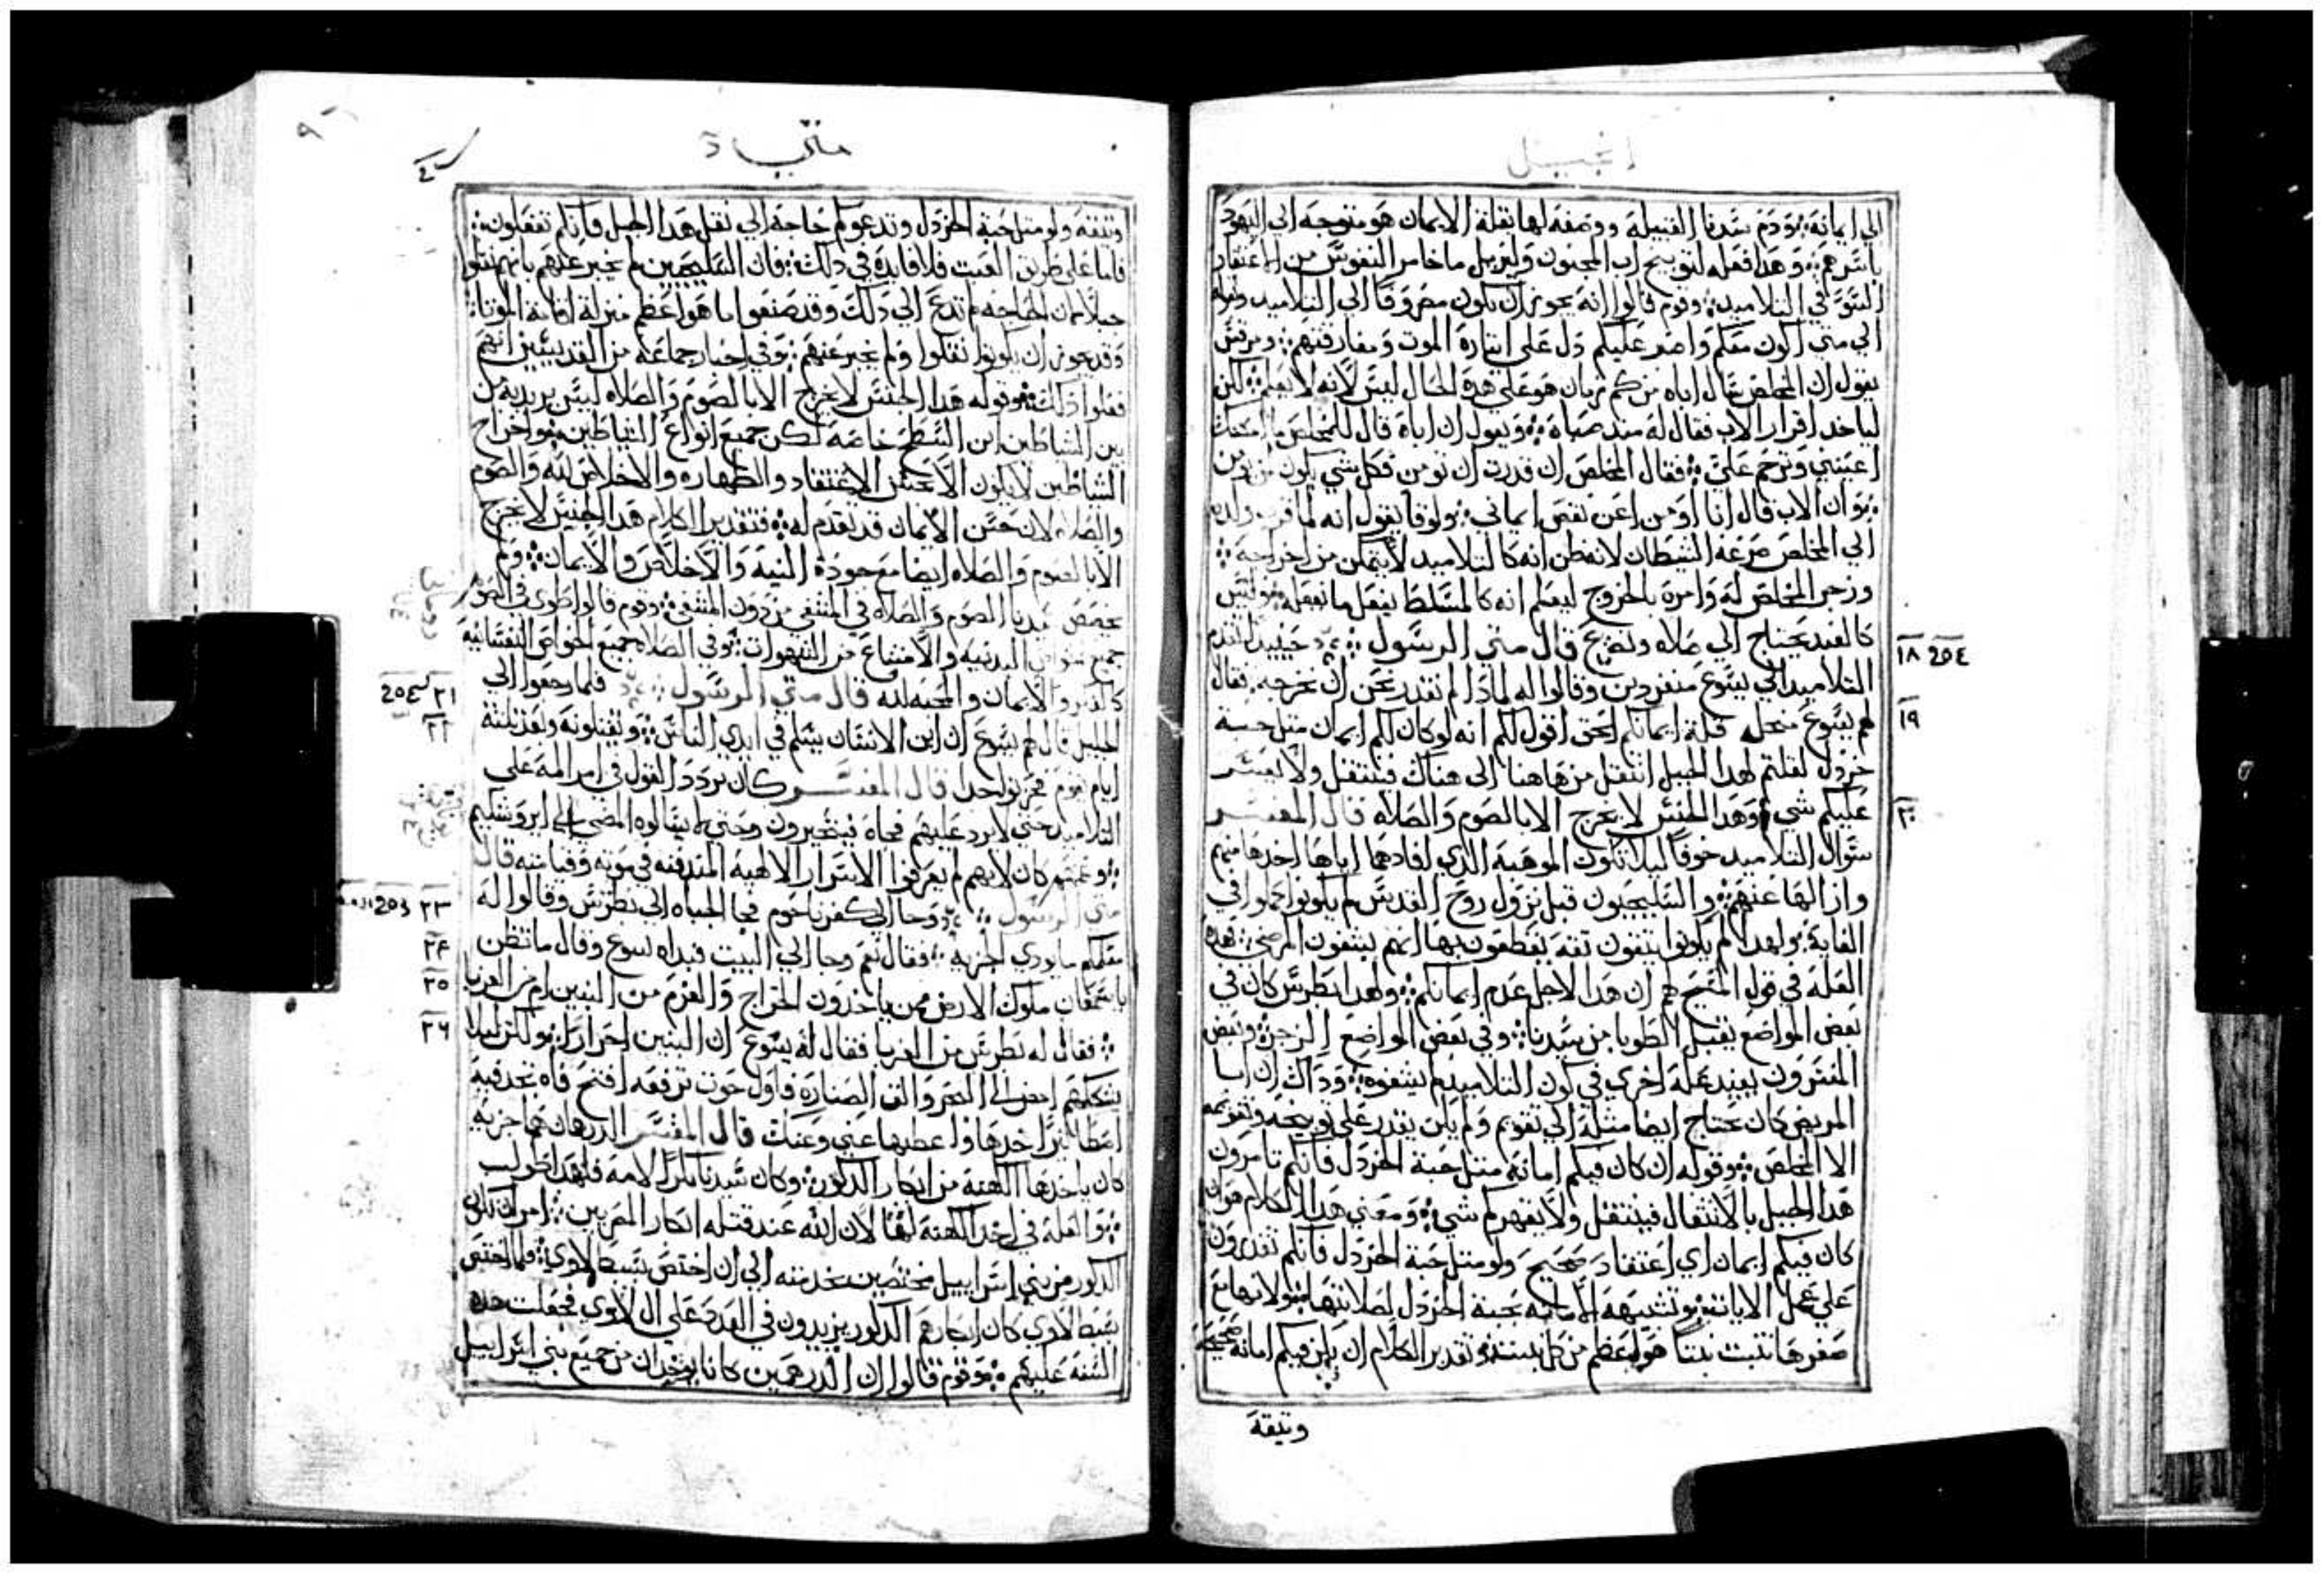 انجيل
الي ايمانه وذم سيدنا القبيلة ووصفه لها بقلة الايمان هو متوجه الي اليهود
باسرهم وهذا فعله لتوبيخ اب المجنون وليزيل ما خامر النفوس من اعتقاد
السو في التلاميد وقوم قالوا انه يجوز ان يكون مصروفا الي التلاميد وقوله
الي متي اكون معكم واصبر عليكم دل علي ايثاره الموت ومفارقتهم ومرقس
يقول ان المخلص سال اباه من كم زمان هو علي هده الحال ليس لانه لا يعلم لكن
لياخد اقرار الاب فقال له مند صباه ويقول ان اباه قال للمخلص ما امكنك
اعيني وترحم علي فقال المخلص ان قدرت ان تومن فكل شي يكون لمن يومن
وان الاب قال انا اومن اعن نقص ايماني ولوقا يقول انه لما قرب ولده
الي المخلص صرعه الشيطان لانه ظن انه كالتلاميد لا يتمكن من اخراجه
وزجر المخلص له وامره بالخروج ليعلم انه كالمسلط يفعل ما يفعله وليس
كالعبد يحتاج الي صلاه وتضرع قال متي الرسول حينيد تقدم
١٨ ٢٥٤
التلاميد الي يسوع منفردين وقالوا له لمادا لم نقدر نحن ان نخرجه فقال
لهم يسوع من اجل قلة ايمانكم الحق اقول لكم انه لو كان لكم ايمان متل حبة
١٩
خردل لقلتم لهدا الجبل انتقل من هاهنا الي هناك فينتقل ولا يعسر
عليكم شي وهدا الجنس لا يخرج الا بالصوم والصلاه قال المفسر
٢٠
سوال التلاميد خوفا ليلا تكون الموهبة الدي افادهما اياها اخدها منهم
وازالها عنهم والسليحيون قبل نزول روح القدس لم يكونوا كملوا في
الغاية ولهدا لم يكونوا يتقون تقه يقطعون بها انهم يشفون المرضي هده
العلة في قول المسيح لهم ان هدا لاجل عدم ايمانكم ولهدا بطرس كان في
بعض المواضع يقبل الطوبا من سيدنا وفي بعض المواضع الزجر وبعض
المفسرون يفيد علة اخري في كون التلاميد لم يشفوه وداك ان ابا
المريض كان يحتاج ايضا متله الي تقويم ولم يكن يقدر علي توبيخه وتقويمه
الا المخلص وقوله ان كان فيكم امانه متل حبة الخردل فانكم تامرون
هدا الجبل بالانتقال فينتقل ولا يقهركم شي ومعني هدا الكلام هو ان
كان فيكم ايمان اي اعتقاد صحيح ولو متل حبة الخردل فانكم تقدرون
علي عمل الايات وتشبهه الامانه بحبة الخردل لصلابتها ولانها مع
صغرها تنبت نبتا هو اعظم من كل نبته تقدير الكلام ان يكن فيكم امانه صحيحة
وتيقة
متي
وتيقه ولو متل حبة الخردل وتدعوكم حاجه الي نقل هدا الجبل فانكم تفعلون
فاما علي طريق العبت فلا فايدة في دلك فان السليحيين لم يخبر عنهم بانهم نقلوا
جبلا لان الحاجه لم تدع الي دلك وقد صنعوا ما هو اعظم منزلة اقامة الموتا
وقد يجوز ان يكونوا نقلوا ولم يخبر عنهم وفي اخبار جماعه من القديسين انهم
فعلوا دلك وقوله هدا الجنس لا يخرج الا بالصوم والصلاه ليس يريد به من
بين الشياطين ابن السطح خاصة لكن جميع انواع الشياطين واخراج
الشياطين لا يكون الا بحسن الاعتقاد والطهاره والاخلاص لله والصوم
والصلاه لان حسن الايمان قد تقدم له فتقدير الكلام هدا الجنس لا يخرج
الا بالصوم والصلاه ايضا مع جودة النيه والاخلاص والايمان ولم
يخصص سيدنا الصوم والصلاه في المشفي من دون المشفي وقوم قالوا طوي في الصوم
جميع الخواص البدنيه والامتناع من الشهوات وفي الصلاه جميع الخواص النفسانيه
كالفكر والايمان والمحبه لله قال متي الرسول فلما رجعوا الي
٢١ ٢٥٤
الجليل قال لهم يسوع ان ابن الانسان يسلم في ايدي الناس ويقتلونه وبعد تلتة
٢٢
ايام يقوم فحزنوا جدا قال المفسر كان يردد القول في امر المه علي
التلاميد حتي لا يرد عليهم فجاه فيتحيرون وحتي لا يسالوه المضي الي ايروشليم
وغمهم كان لانهم لم يعرفوا الاسرار الالاهيه المندفنه في موته وقيامته قال
متي الرسول وجا الي كفرناحوم فجا الجباه الي بطرس وقالوا له
٢٣ ٢٥٥
معلمكم ما يودي الجزيه فقال نعم وجا الي البيت فبداه يسوع وقال ما تظن
٢٤
يا سمعان ملوك الارض ممن ياخدون الخراج والغرم من البنين ام من الغربا
٢٥
فقال له بطرس من الغربا فقال له يسوع ان البنين احرارا ولكن ليلا
٢٦
نشككهم امض الي البحر والق الصناره فاول حوت ترفعه افتح فاه تجد فيه
اسطاتيرا خدها واعطيها عني وعنك قال المفسر الدرهمان هما جزيه
كان ياخدها الكهنة من ابكار الدكور وكان سيدنا بكرا لامه فلهدا طولب
والعلة في اخد الكهنة لها لان الله عند قتله ابكار المصريين امر ان تكون
الدكور من بني اسراييل مختصين بخدمته الي ان اختص بسبط لاوي فلما اختص
بسبط لاوي كان ابكارهم الدكور يزيدون في العدد علي ال لاوي فجعلت هده
السنة عليهم وقوم قالوا ان الدرهمين كانا يوخدان من جميع بني اسراييل